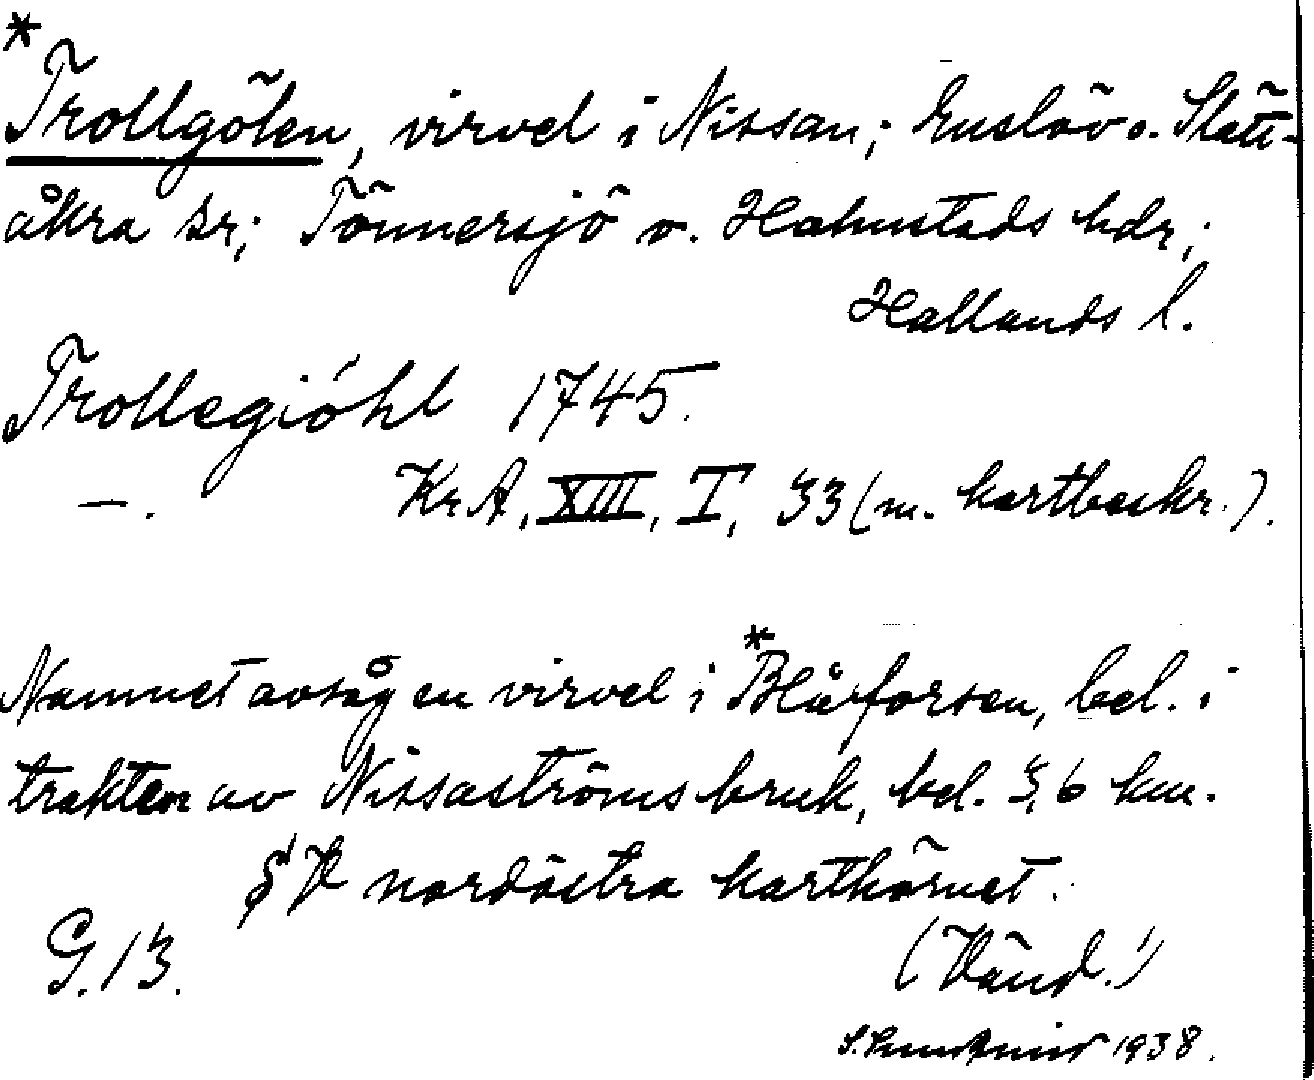 *
Trollgölen, virvel i Nissan; Enslöv o. Slätt-
åkra snr; Tönnersjö o. Halmstads hdr;
Hallands l.
Trollegióhl 1745.
—. KrA, XIII, I, 33 (m. kartbeskr.).
Namnet avsåg en virvel i *Blåforsen, bel. i
trakten av Nissaströms bruk, bel. 3,6 km.
SV nordöstra karthörnet.
G. 13. (Vänd!)
1938.